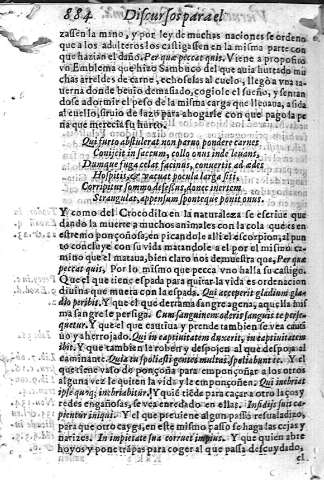 884 Discursos para el
zassen la mano, y por ley de muchas naciones se ordeno
que a los adulteros los castigassen en la misma parte con
que hazian el daño. Per quæ peccas quis. Viene a proposito
vn Emblema que hizo Sambuco del que auia hurtado mu
chas arreldes de carne, echoselas al cuello, llegò a vna ta
uerna donde beuio demasiado, cogiole el sueño, y sentan
dose adormir el peso de la misma carga que lleuaua, asida
al cuello, siruio de lazo para ahogarle con que pago la pe
na que merecia su hurto.
Qui furto abstulerat non paruo pondere carnes
Conijcit in saccum, collo onus inde leuans,
Dumque fuga celat facinus, conuertit ad ædes
Hospitis, & vacuat pocula larga siti.
Corripitur somno defessus, donec inertem
Strangulat, appensum sponteque ponit onus.
Y como del Crocodilo en la naturaleza se escriue que
dando la muerte a muchos animales con la cola que es en
estremo ponçoñosa, en picandole alli el escorpion, al pun
to concluye con su vida matandole a el por el mismo ca
mino que el mataua, bien claro nos demuestra que, Per quæ
peccas quis, Por lo mismo que pecca vno halla su castigo.
Que el que tiene espada para quitar la vida es ordenacion
diuina que muera con la espada. Qui acceperit gladium gla
dio peribit. Y que el que derrama sangre agena, aquella mis
ma sangre le persiga. Cum sanguinem oderis sanguis te perse-
quetur. Y que el que cautiua y prende tambien se vea cauti
uo y aherrojado. Qui in captiuitatem duxerit, in captiuitatem
ibit. Y que tambien le roben y despojen al que despoja al
caminante. Quia tu spoliasti gentes multas, spoliabunt te. Y el
que tiene vaso de ponçoña para emponçoñar a los otros
alguna vez le quiten la vida y le emponçoñen. Qui inebriat
ipse quoque inebriabitur. Y que el que tiẽde para caçar a otro laços y
redes engañosas, se vea enredado en ellas. In insidijs suis ca-
pientur iniqui. Y el que preuiene algun passo resualadizo,
para que otro cayga, en este mismo passo se haga las cejas y
narizes. In impietate sua corruet impius. Y que quien abre
hoyos y pone trãpas para coger al que passa descuydado,
el